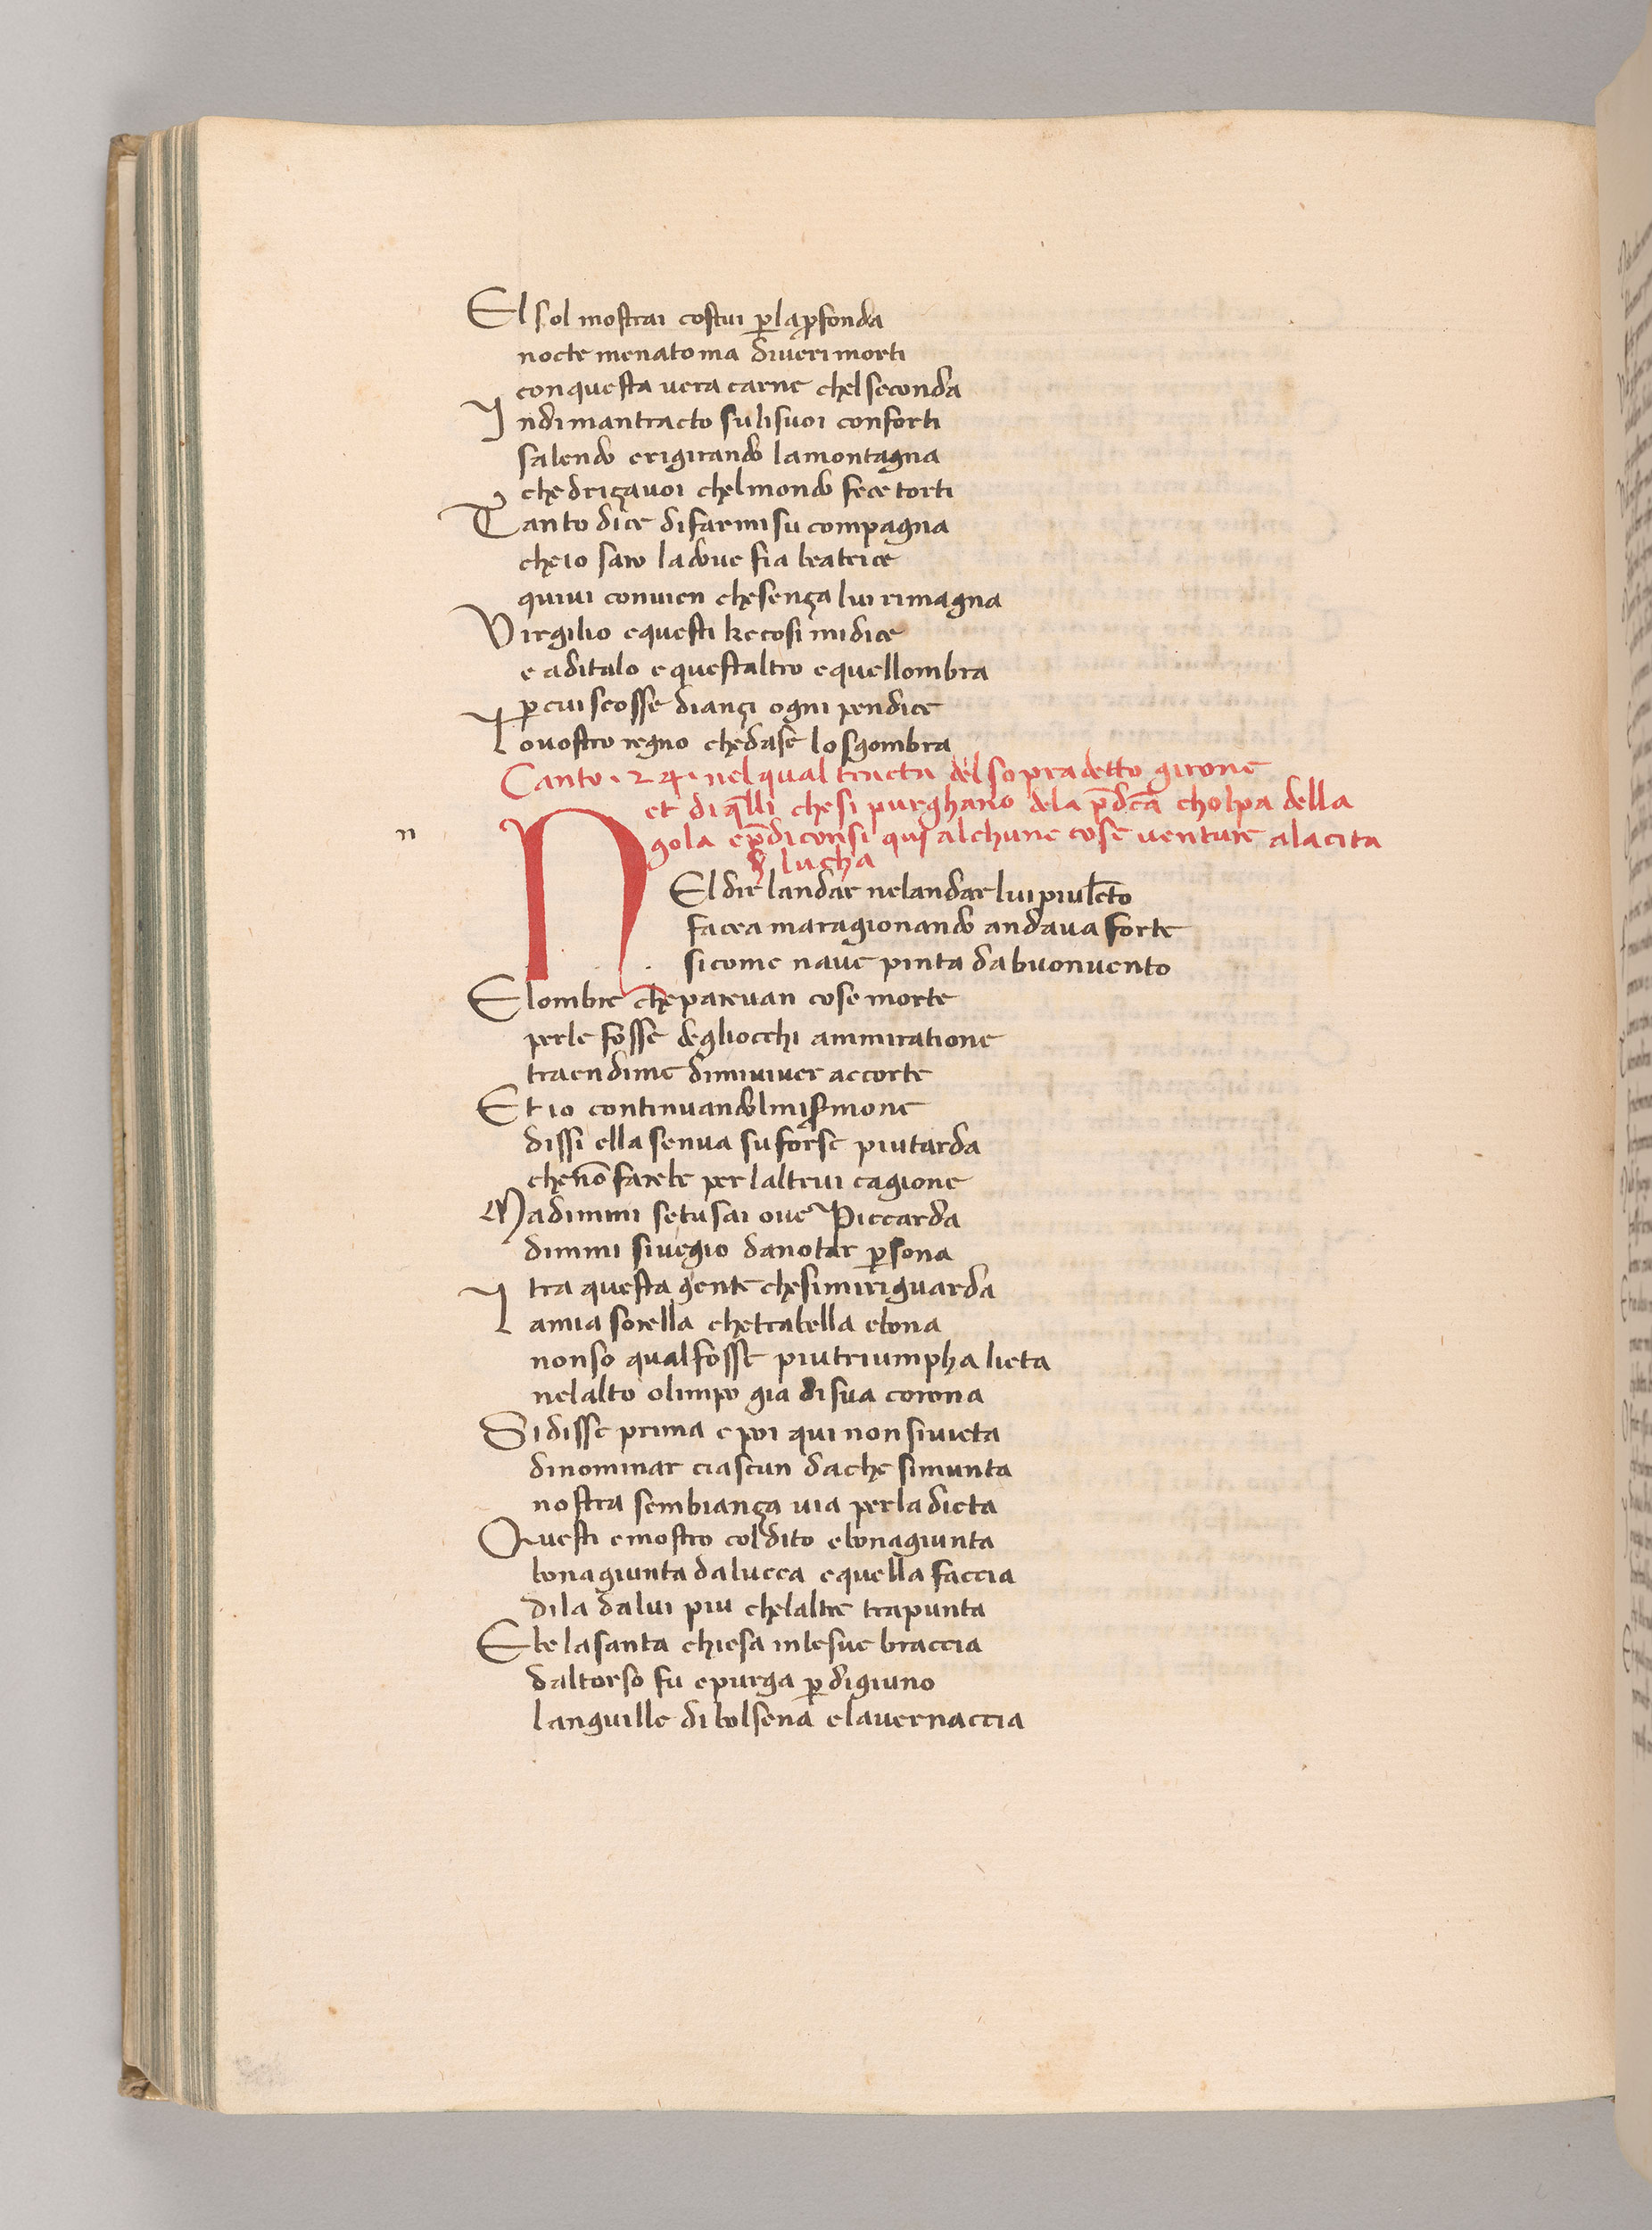 El sol mostrai costui ꝑ la ꝓfonda
nocte menatoma diveri morti
conquesta vera carne chel seconda
Indi mantracto su li suoi conforti
salendo erigirando lamontagna
che driçavoi chelmondo fece torti
Tanto dice difarmi su compagna
che io saro ladove fia beatrice
quivi convien che sença lui rimagna
Virgilio equesti ke cosi mi dice
e aditalo e questaltro e quellombra
ꝑ cui scosse diançi ogni pendice
Lo vostro regno che dase lo sgombra
Canto · 24 · nel qual tracta del sopradetto girone
et di q̄lli che si purghano dela p̄dc̄a cholpa della
gola e p̄diconsi qui alchune cose venture ala cita
d lucha
n
NEl dir landar nelandar lui piu lēto
facea maragionando andava forte
sicome nave pinta da buon vento
E lombre che parevan cose morte
per le fosse degliocchi ammiratione
traen dime dimiviver accorte
Et io continuandolmi sꝑmone
dissi ella senva su forse piu tarda
che nō farebe per laltrui cagione
Ma dimmi setusai ove Piccarda
dimmi sivegio da notar ꝑsona
tra questa gente che simiriguarda
La mia sorella che tra bella e bona
non so qual fosse piu triumpha lieta
nelalto olimpo gia di sua corona
Si disse prima e poi qui non si vieta
dinominar ciascun da che simunta
nostra sembiança via per la dieta
Questi e mostro col dito e bonagiunta
bonagiunta dalucca e quella faccia
di la da lui piu chelaltre trapunta
Ebe la santa chiesa in le sue braccia
dal torso fu e purga ꝑ digiuno
languille di bolsena e la vernaccia